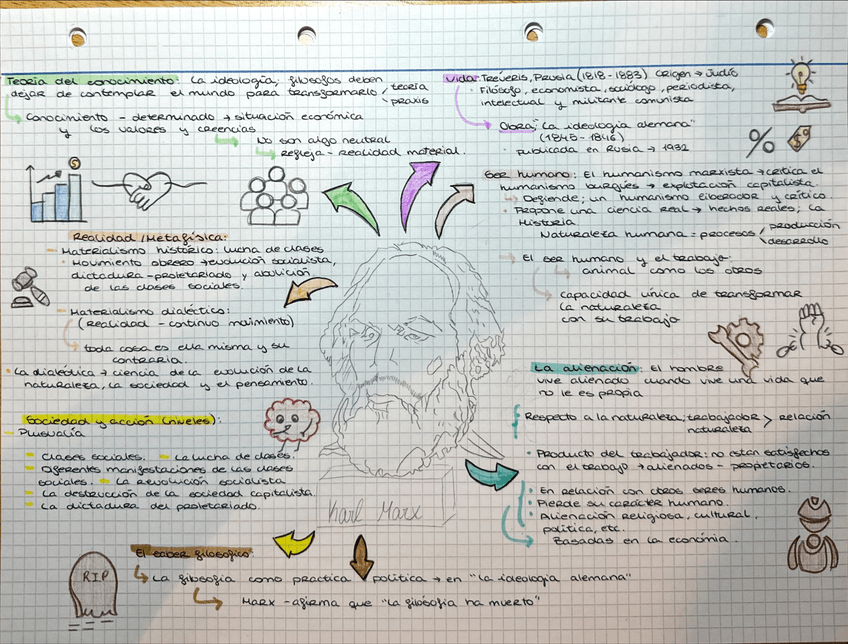 Teoría del conocimiento: La ideología; filósofos deben
dejar de contemplar el mundo para transformarlo / teoría
\ praxis
Conocimiento - determinado → situación económica
y los valores y creencias
No son algo neutral
Refleja - realidad material.
Vida: Tréveris, Prusia (1818-1883) Origen → Judío
· Filósofo, economista, sociólogo, periodista,
intelectual y militante comunista
Obra: "La ideología alemana"
(1845-1846)
· Publicada en Rusia → 1932
%
$
$
Ser humano: El humanismo marxista → critica el
humanismo burgués → explotación capitalista.
Defiende; un humanismo liberador y crítico.
· Propone una ciencia real → hechos reales; la
Historia
Naturaleza humana = procesos / producción
\ desarrollo
El ser humano y el trabajo:
animal como los otros
capacidad única de transformar
la naturaleza
con su trabajo
Realidad / Metafísica:
- Materialismo histórico: lucha de clases
· Movimiento obrero → revolución socialista,
dictadura - proletariado y abolición
de las clases sociales.
- Materialismo dialéctico:
(Realidad - continuo movimiento)
toda cosa es ella misma y su
contraria.
· La dialéctica → ciencia de la evolución de la
naturaleza, la sociedad y el pensamiento.
La alienación: El hombre
vive alienado cuando vive una vida que
no le es propia
Respecto a la naturaleza; trabajador > relación
naturaleza
· Producto del trabajador: no están satisfechos
con el trabajo → alienados - propietarios.
· En relación con otros seres humanos.
· Pierde su carácter humano.
· Alienación religiosa, cultural,
política, etc.
Basadas en la economía.
Sociedad y acción (niveles):
- Plusvalía
- Clases sociales. - La lucha de clases.
- Diferentes manifestaciones de las clases
sociales. - La revolución socialista
- La destrucción de la sociedad capitalista.
- La dictadura del proletariado.
Karl Marx
El saber filosófico:
La filosofía como practica política → en "la ideología alemana"
Marx - afirma que "la filosofía ha muerto"
RIP